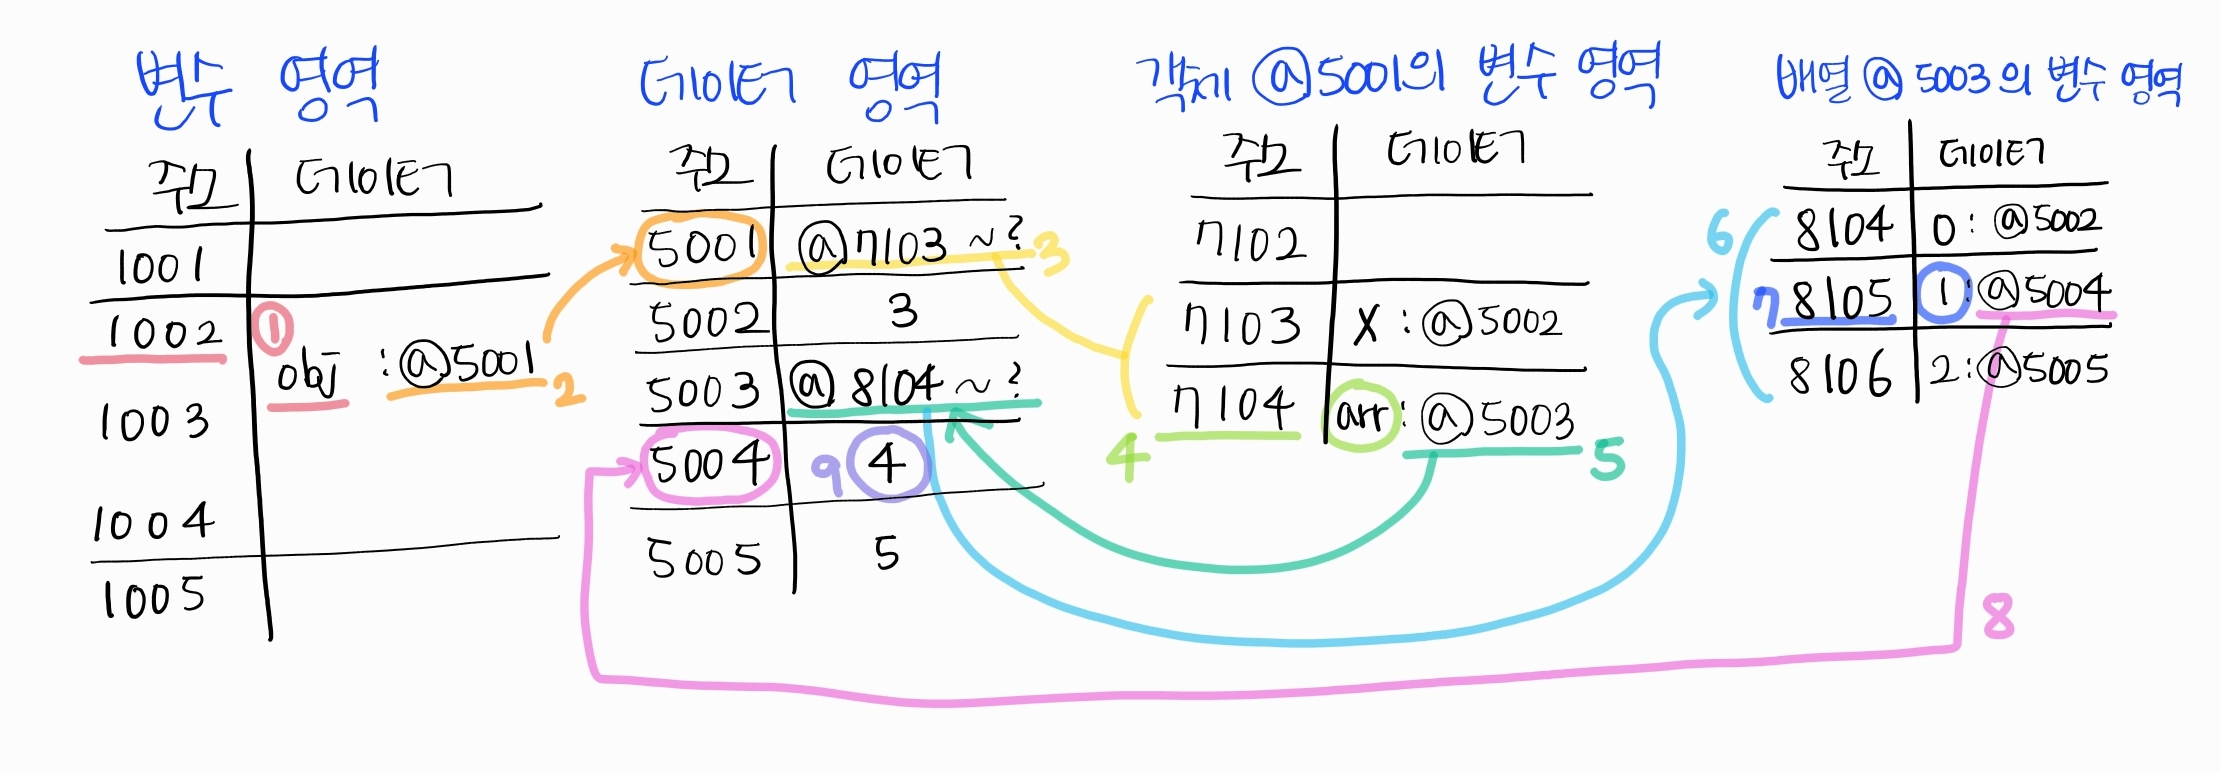 변수 영역
주소 데이터
1001
1002 ① obj : @5001 2
1003
1004
1005
데이터 영역
주소 데이터
5001 @7103 ~ ? 3
5002 3
5003 @8104 ~ ?
5004 9 4
5005 5
객체 @5001의 변수 영역
주소 데이터
7102
7103 x : @5002
4 7104 arr : @5003 5
배열 @5003의 변수 영역
주소 데이터
6 8104 0 : @5002
7 8105 1 : @5004
8106 2 : @5005
8